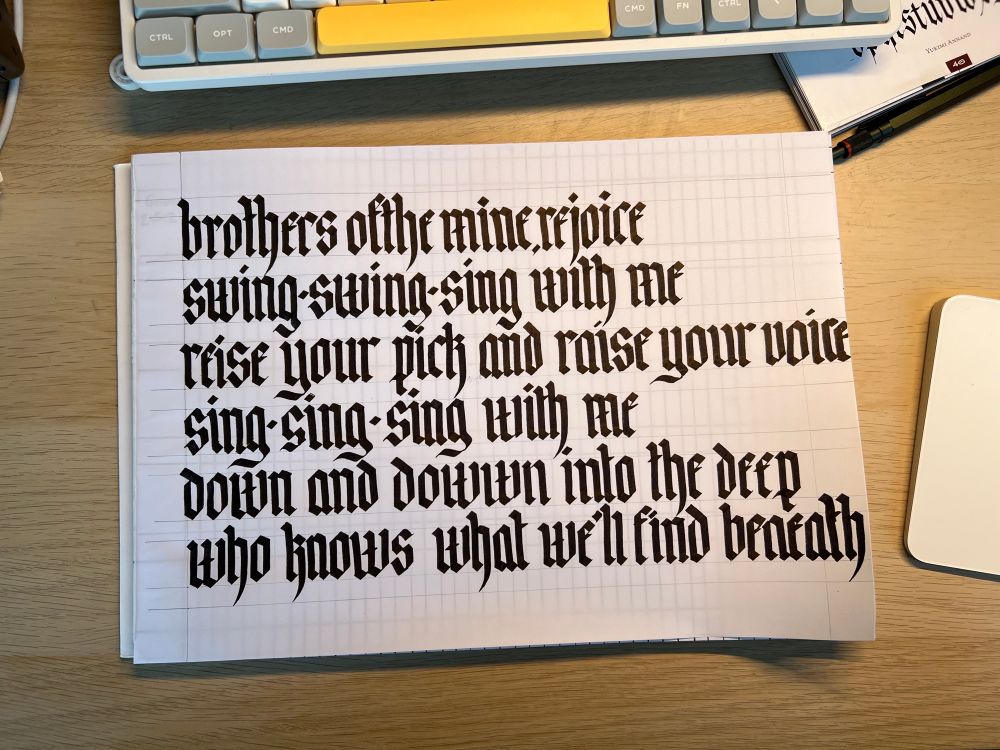 CTRL OPT CMD CMD FN CTRL
YUKIMI ANNAND
46
brothers of the mine, rejoice
swing·swing·sing with me
reise your pick and raise your voice
sing·sing·sing with me
down and dowwn into the deep
who knows what we'll find beneath